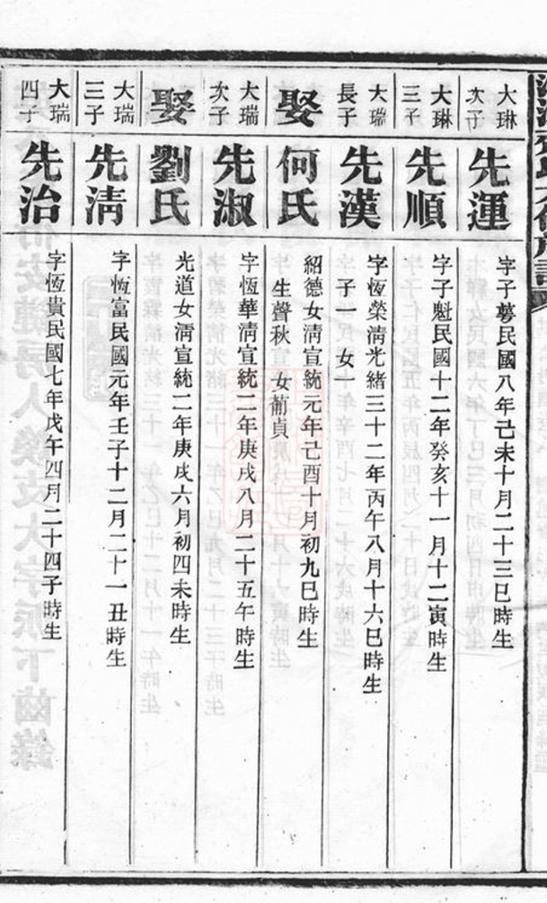 大琳
次子
先運
字子夢民國八年己未十月二十三巳時生
大琳
三子
先順
字子魁民國十二年癸亥十一月十二寅時生
大瑞
長子
先漢
字恆榮淸光緒三十二年丙午八月十六巳時生
子一 女一
娶
何氏
紹德女淸宣統元年己酉十月初九巳時生
生聲秋 女蘭貞
大瑞
次子
先淑
字恆華淸宣統二年庚戌八月二十五午時生
娶
劉氏
光道女淸宣統二年庚戌六月初四未時生
大瑞
三子
先淸
字恆富民國元年壬子十二月二十一丑時生
大瑞
四子
先治
字恆貴民國七年戊午四月二十四子時生